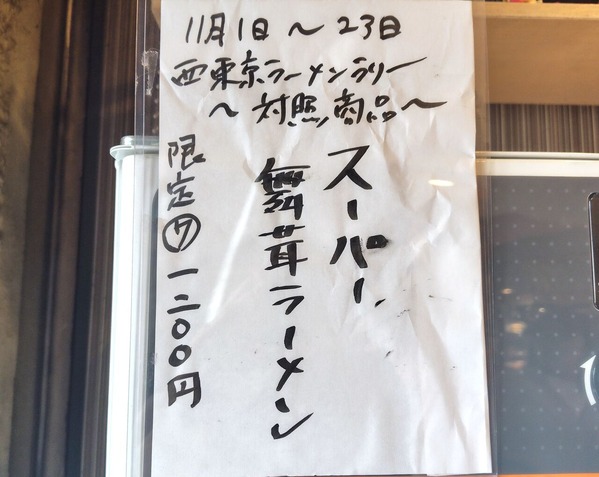 11月1日 ～ 23日
西東京ラーメンラリー
～対照商品～
スーパー
舞茸ラーメン
限定㋐一二〇〇円